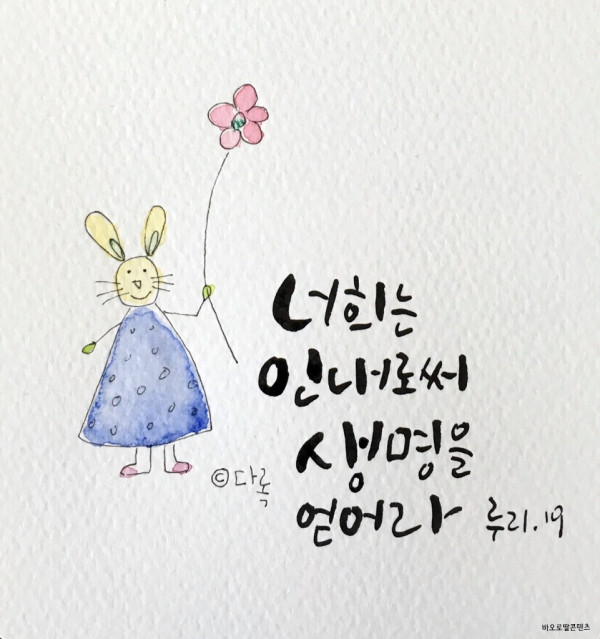 너희는
인내로써
생명을
얻어라 루21.19
©다록
바오로딸콘텐츠